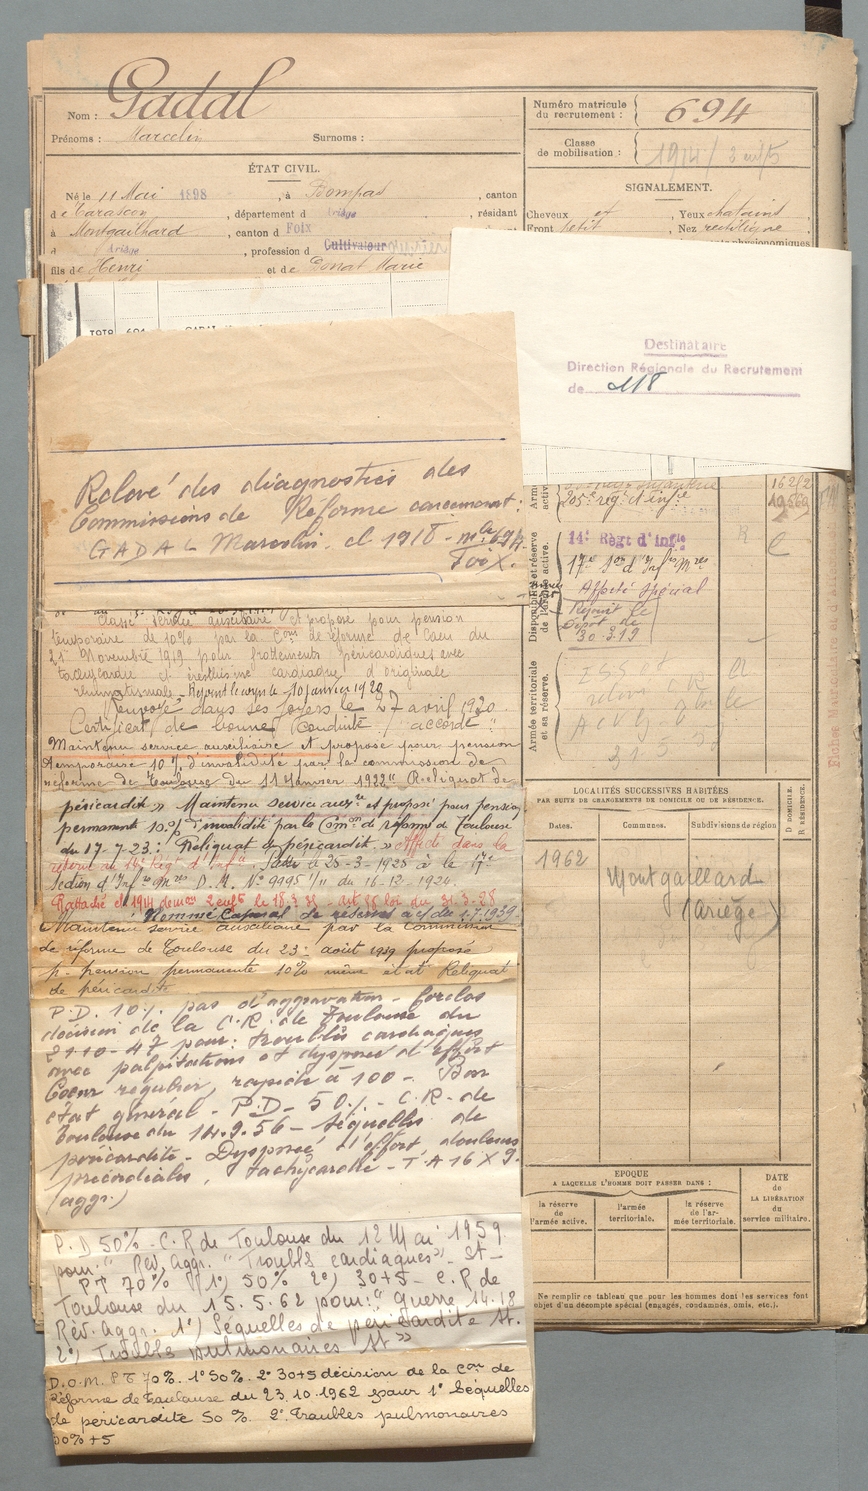 Nom : Gadal
Prénoms : Marcelin Surnoms :
Numéro matricule
du recrutement : 694
Classe
de mobilisation : 1914 / 2 enf/5
ÉTAT CIVIL.
Né le 11 Mai 1898 , à Bompas , canton
de Tarascon , département d Ariège , résidant
à Montgailhard , canton d Foix
d Ariège , profession d Cultivateur
fils de Henri et de Donat Marie
SIGNALEMENT.
Cheveux et , Yeux chatains
Front petit , Nez rectiligne
Destinataire
Direction Régionale du Recrutement
de 118
Relevé des diagnostics des
Commissions de Réforme concernant :
GADAL Marcelin. cl 1918 - mle 694
Foix.
Classé service auxiliaire et proposé pour pension
temporaire de 10% par la Con de réforme de Caen du
21 Novembre 1919 pour frottements péricardiques avec
tachycardie et éréthisme cardiaque d'origine
rhumatismale - Rejoint le corps le 10 janvier 1920
Renvoyé dans ses foyers le 27 avril 1920.
Certificat de bonne conduite "accordé"
Maintenu service auxiliaire et proposé pour pension
temporaire 10% d'invalidité par la commission de
réforme de Toulouse du 11 Janvier 1922 " Reliquat de
péricardite » Maintenu service auxre et proposé pour pension
permanente 10% d'invalidité par la Comon de réforme de Toulouse
du 17-7-23 : Reliquat de péricardite. » Affecté dans la
réserve au 14e Régt d'Infie Passé le 25-3-1925 à la 17e
Section d'Infres Mres D.M. No 9995 1/11 du 16-12-1924.
Rattaché cl 1914 comme 2 enfts le 18.3.31 - art 58 loi du 31.3.28
Nommé Caporal de réserve a/c du 1.7.1939.
Maintenu service auxiliaire par la Commission
de réforme de Toulouse du 23 août 1939 proposé
p. pension permanente 10% même état Reliquat
de péricardite
P.D. 10%. pas d'aggravation - forclos
décision de la C.R. de Toulouse du
21-10-47 pour : troubles cardiaques
avec palpitations et dyspnée d'effort
Coeur régulier, rapide à 100 - Bon
état général - P.D - 50% - C.R. de
Toulouse du 14.9.56 - Séquelles de
péricardite - Dyspnée d'effort, douleurs
précordiales, tachycardie - T.A 16 X 9.
(aggr.)
P.D 50% - C.R de Toulouse du 12 Mai 1959
pour : " Rév. Aggr. " Troubles cardiaques " - St -
PT 70% 1°) 50% 2°) 30+5 - C.R de
Toulouse du 15.5.62 pour : " guerre 14.18
Rév. Aggr. 1°) Séquelles de péricardite St.
2°) Troubles pulmonaires St »
D.O.M. PT 70%. 1° 50%. 2° 30+5 décision de la Con de
Réforme de Toulouse du 23.10.1962 pour 1° Séquelles
de péricardite 50 %. 2° Troubles pulmonaires
30%+5
205e régt d'infie
14e Régt d'infie
17e Son d'Infres Mres
Affecté Spécial
Rejoint le
Dépôt de
30.3.19
Disponibilité et réserve
de l'armée active.
Armée territoriale
et sa réserve.
LOCALITÉS SUCCESSIVES HABITÉES
PAR SUITE DE CHANGEMENTS DE DOMICILE OU DE RÉSIDENCE.
Dates. Communes. Subdivisions de région D DOMICILE. R RÉSIDENCE.
1962 Montgaillard
(Ariège)
EPOQUE
A LAQUELLE L'HOMME DOIT PASSER DANS :
la réserve
de l'armée active.
l'armée
territoriale.
la réserve
de l'armée territoriale.
DATE
de
LA LIBÉRATION
du
service militaire.
Ne remplir ce tableau que pour les hommes dont les services font
objet d'un décompte spécial (engagés, condamnés, omis, etc.).